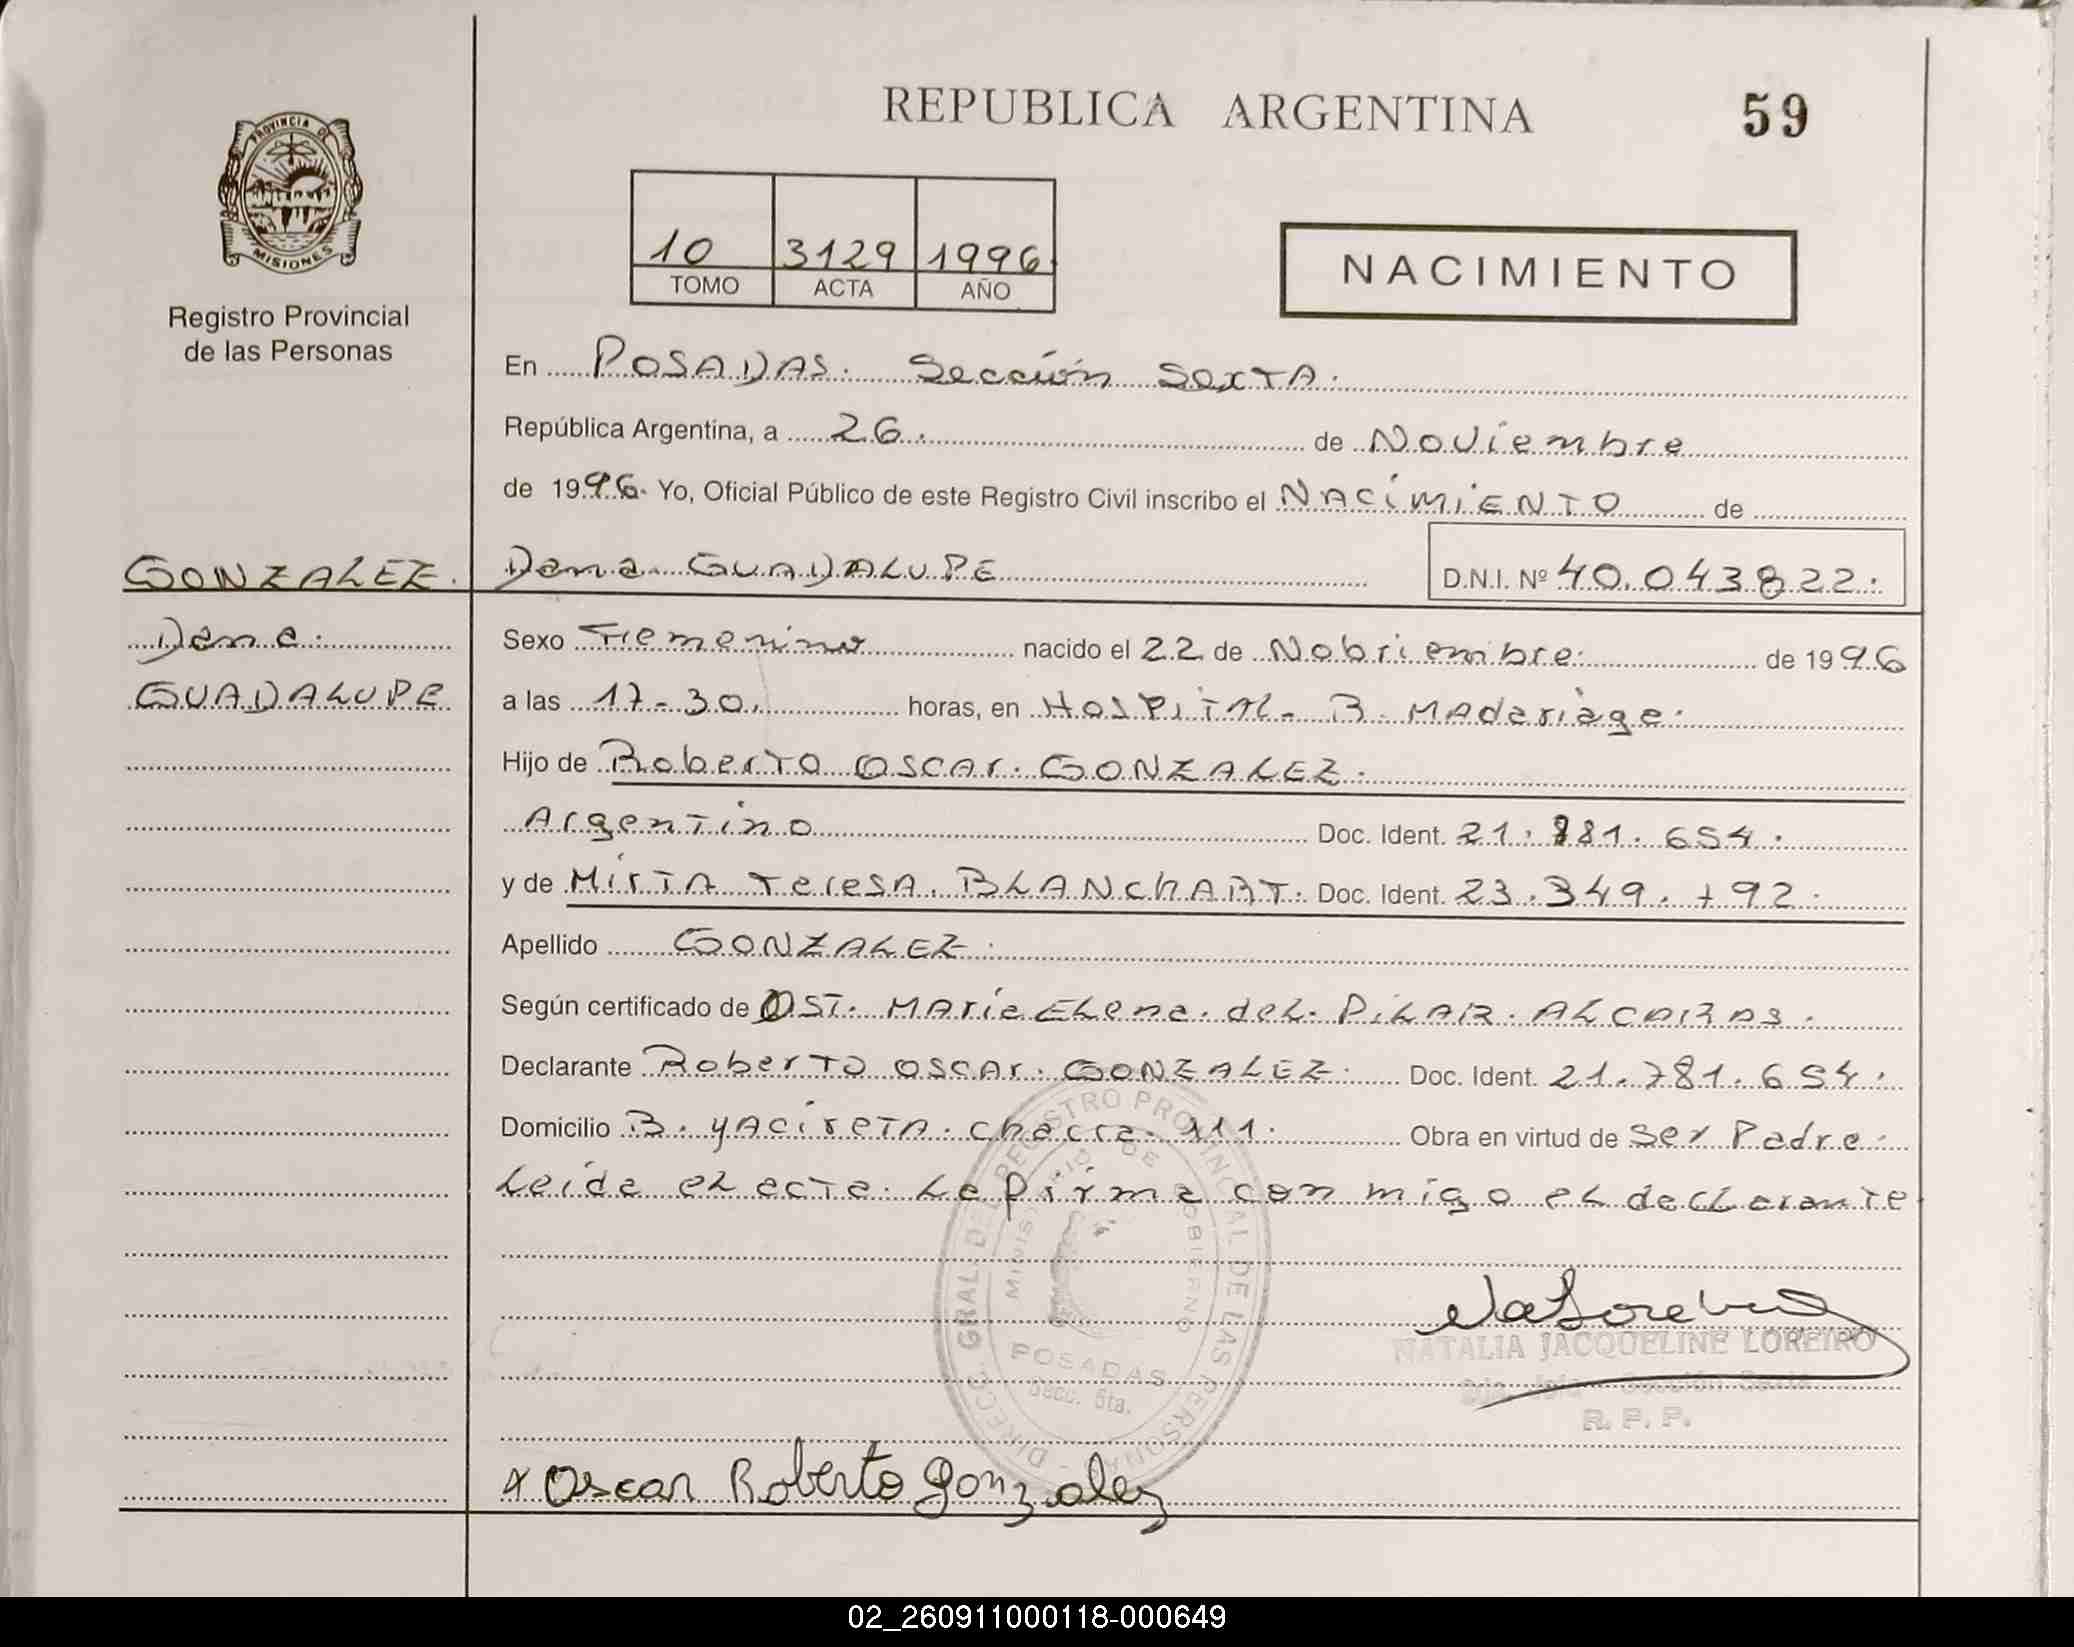 REPUBLICA ARGENTINA
59
PROVINCIA DE
MISIONES
Registro Provincial
de las Personas
10 3129 1996
TOMO ACTA AÑO
NACIMIENTO
En POSADAS. Sección SexTA.
República Argentina, a 26. de NoViembre
de 1996. Yo, Oficial Público de este Registro Civil inscribo el NACIMIENTO de
GONZALEZ. Dana GUADALUPE D.N.I. Nº 40.043822.
Dana.
GUADALUPE
Sexo Femenino nacido el 22 de Nobriembre. de 1996
a las 17-30. horas, en HOSPITAL. B. MAdariaga.
Hijo de RoberTO OSCAr. GONZALEZ.
ArgenTino Doc. Ident. 21. 81. 654.
y de MirTA TeresA. BLANChART. Doc. Ident. 23.349.792.
Apellido GONZALEZ.
Según certificado de OST. MAría ELena. deL. PiLAR. ALCARAS.
Declarante RoberTO OSCAr. GONZALEZ. Doc. Ident. 21.781.654.
Domicilio B. YACireTA. chacra. 111. Obra en virtud de Ser Padre.
Leida eL acTa. La firma con migo eL decLaranTe
DIRECC. GRAL. DEL REGISTRO PROVINCIAL DE LAS PERSONAS
MINISTERIO DE GOBIERNO
POSADAS
Secc. 6ta.
NATALIA JACQUELINE LOREIRO
Sección Sexta
R. P. P.
x Oscar Roberto Gonzalez
02_260911000118-000649